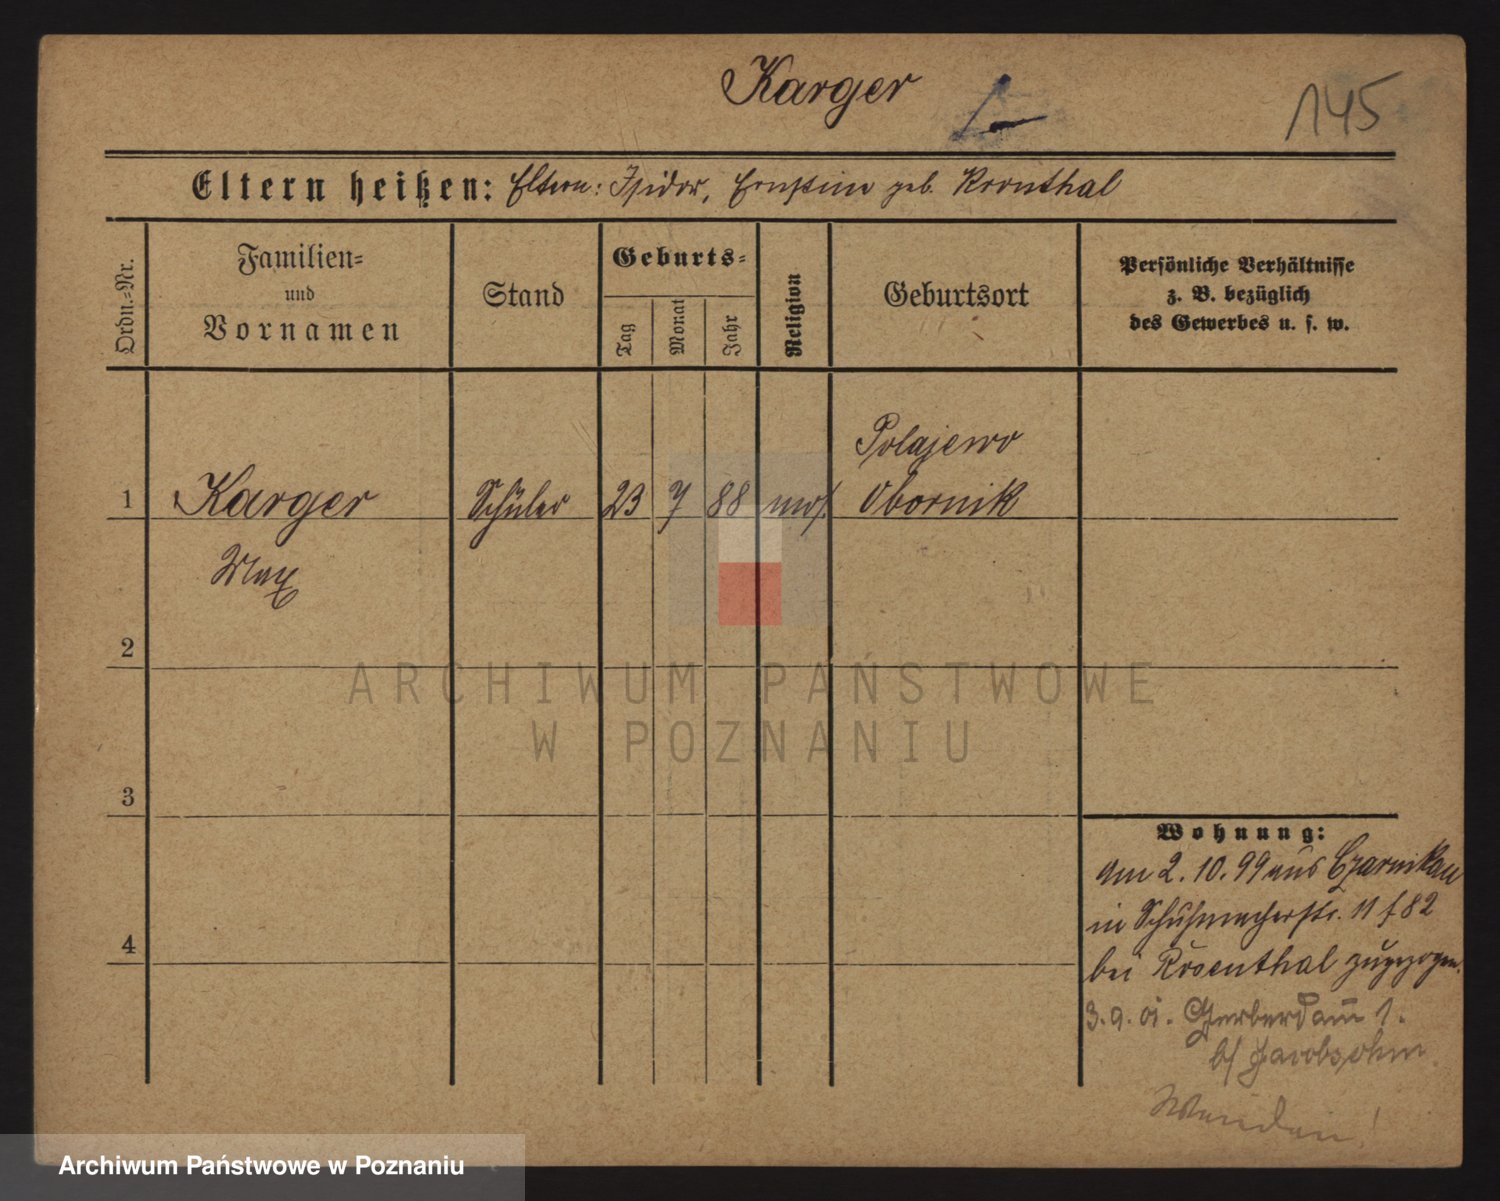 Karger
145
Eltern heißen: Eltern: Isidor, Ernstine geb. Kronthal
Ordn.-Nr.
Familien-
und
Vornamen
Stand
Geburts-
Tag
Monat
Jahr
Religion
Geburtsort
Persönliche Verhältnisse
z. B. bezüglich
des Gewerbes u. s. w.
Polajewo
1 Karger Schüler 23 7 88 mos. Obornik
Max
2
3
4
Wohnung:
am 2. 10. 99 aus Czarnikau
in Schuhmacherstr. 11 f 82
bei Rosenthal zugezogen.
3. 9. 01. Gerberdamm 1.
b/ Jacobsohn.
Wenden!
ARCHIWUM PAŃSTWOWE
W POZNANIU
Archiwum Państwowe w Poznaniu